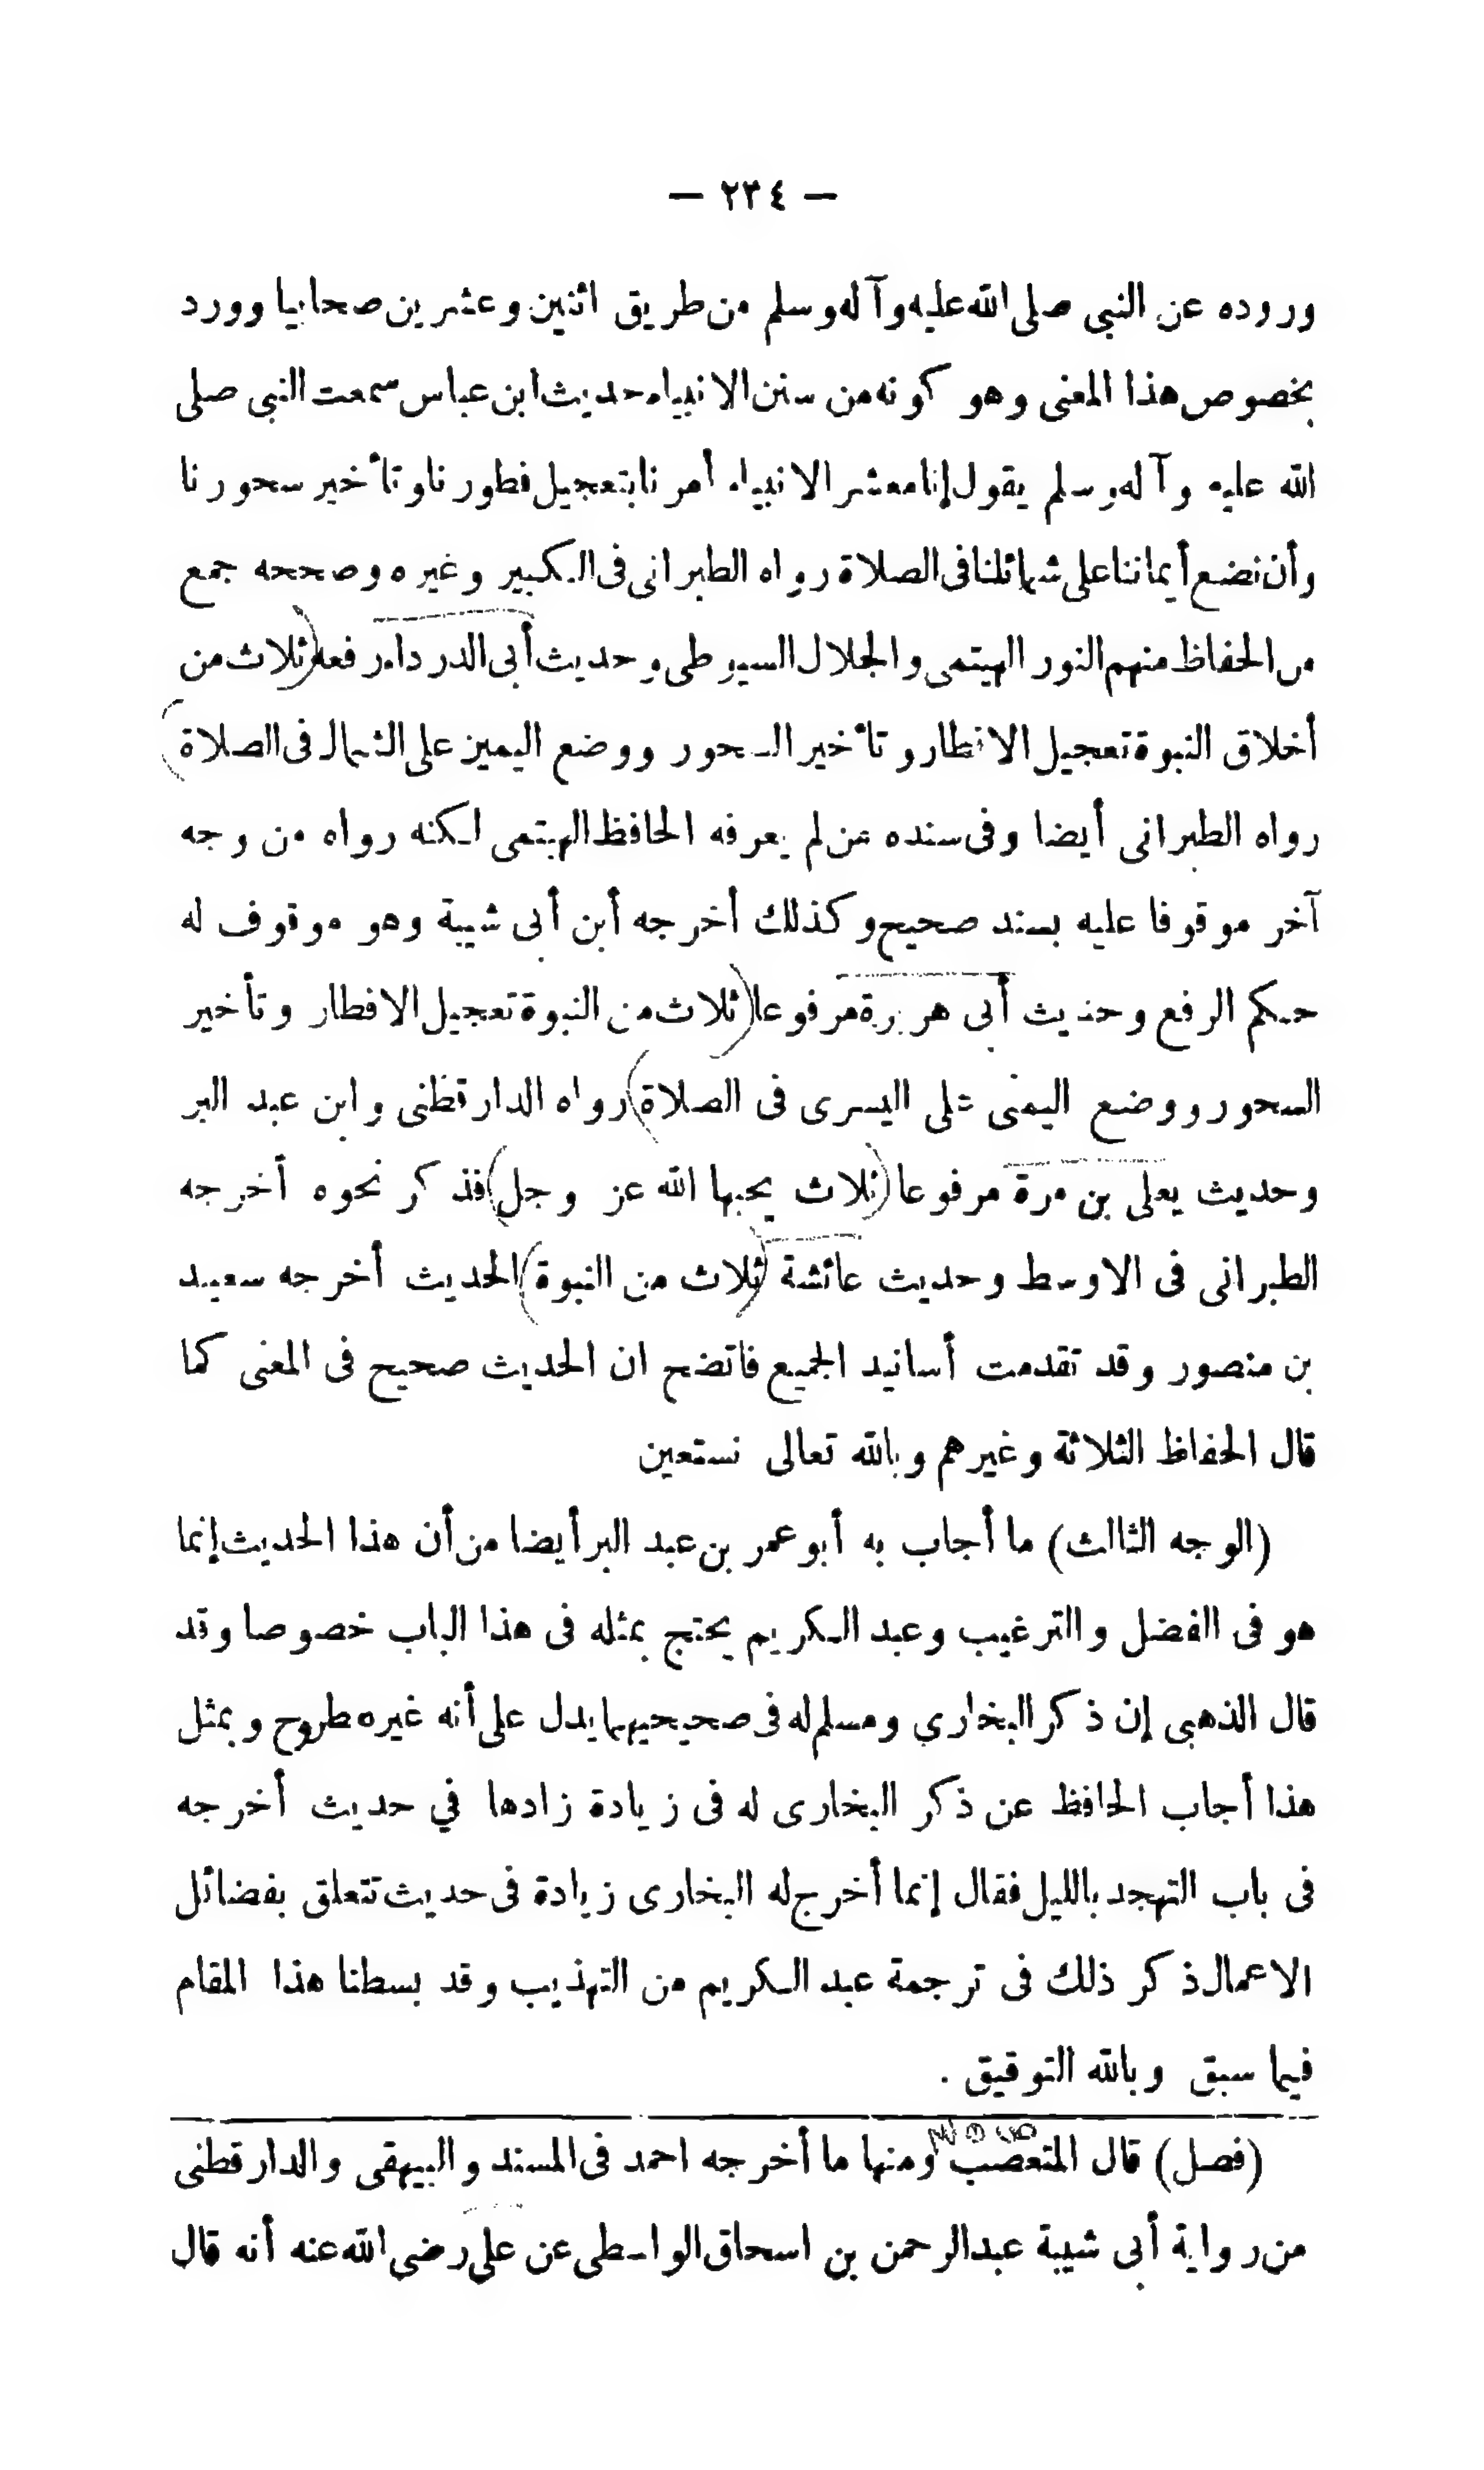 — ٢٣٤ —
وروده عن النبي صلى الله عليه وآله وسلم من طريق اثنين وعشرين صحابيا وورد
بخصوص هذا المعنى وهو كونه من سنن الانبياء حديث ابن عباس سمعت النبي صلى
الله عليه وآله وسلم يقول إنا معشر الانبياء أمرنا بتعجيل فطورنا وتأخير سحورنا
وأن نضع أيماننا على شمائلنا فى الصلاة رواه الطبرانى فى الكبير وغيره وصححه جمع
من الحفاظ منهم النور الهيتمى والجلال السيوطى وحديث أبى الدرداء رفعه (ثلاث من
أخلاق النبوة تعجيل الافطار وتأخير السحور ووضع اليمين على الشمال فى الصلاة)
رواه الطبرانى أيضا وفى سنده من لم يعرفه الحافظ الهيتمى لكنه رواه من وجه
آخر موقوفا عليه بسند صحيح وكذلك أخرجه أبن أبى شيبة وهو موقوف له
حكم الرفع وحديث أبى هريرة مرفوعا (ثلاث من النبوة تعجيل الافطار وتأخير
السحور ووضع اليمنى على اليسرى فى الصلاة) رواه الدارقطنى وابن عبد البر
وحديث يعلى بن مرة مرفوعا (ثلاث يحبها الله عز وجل) فذكر نحوه أخرجه
الطبرانى فى الاوسط وحديث عائشة (ثلاث من النبوة) الحديث أخرجه سعيد
بن منصور وقد تقدمت أسانيد الجميع فاتضح ان الحديث صحيح فى المعنى كما
قال الحفاظ الثلاثة وغيرهم وبالله تعالى نستعين
(الوجه الثالث) ما أجاب به أبو عمر بن عبد البر أيضا من أن هذا الحديث إنما
هو فى الفضل والترغيب وعبد الكريم يحتج بمثله فى هذا الباب خصوصا وقد
قال الذهبى إن ذكر البخاري ومسلم له فى صحيحيهما يدل على أنه غير مطروح وبمثل
هذا أجاب الحافظ عن ذكر البخارى له فى زيادة زادها في حديث أخرجه
فى باب التهجد بالليل فقال إنما أخرج له البخارى زيادة فى حديث تتعلق بفضائل
الاعمال ذكر ذلك فى ترجمة عبد الكريم من التهذيب وقد بسطنا هذا المقام
فيما سبق وبالله التوفيق .
(فصل) قال المتعصب ومنها ما أخرجه احمد فى المسند والبيهقى والدارقطنى
من رواية أبى شيبة عبد الرحمن بن اسحاق الواسطى عن على رضى الله عنه أنه قال